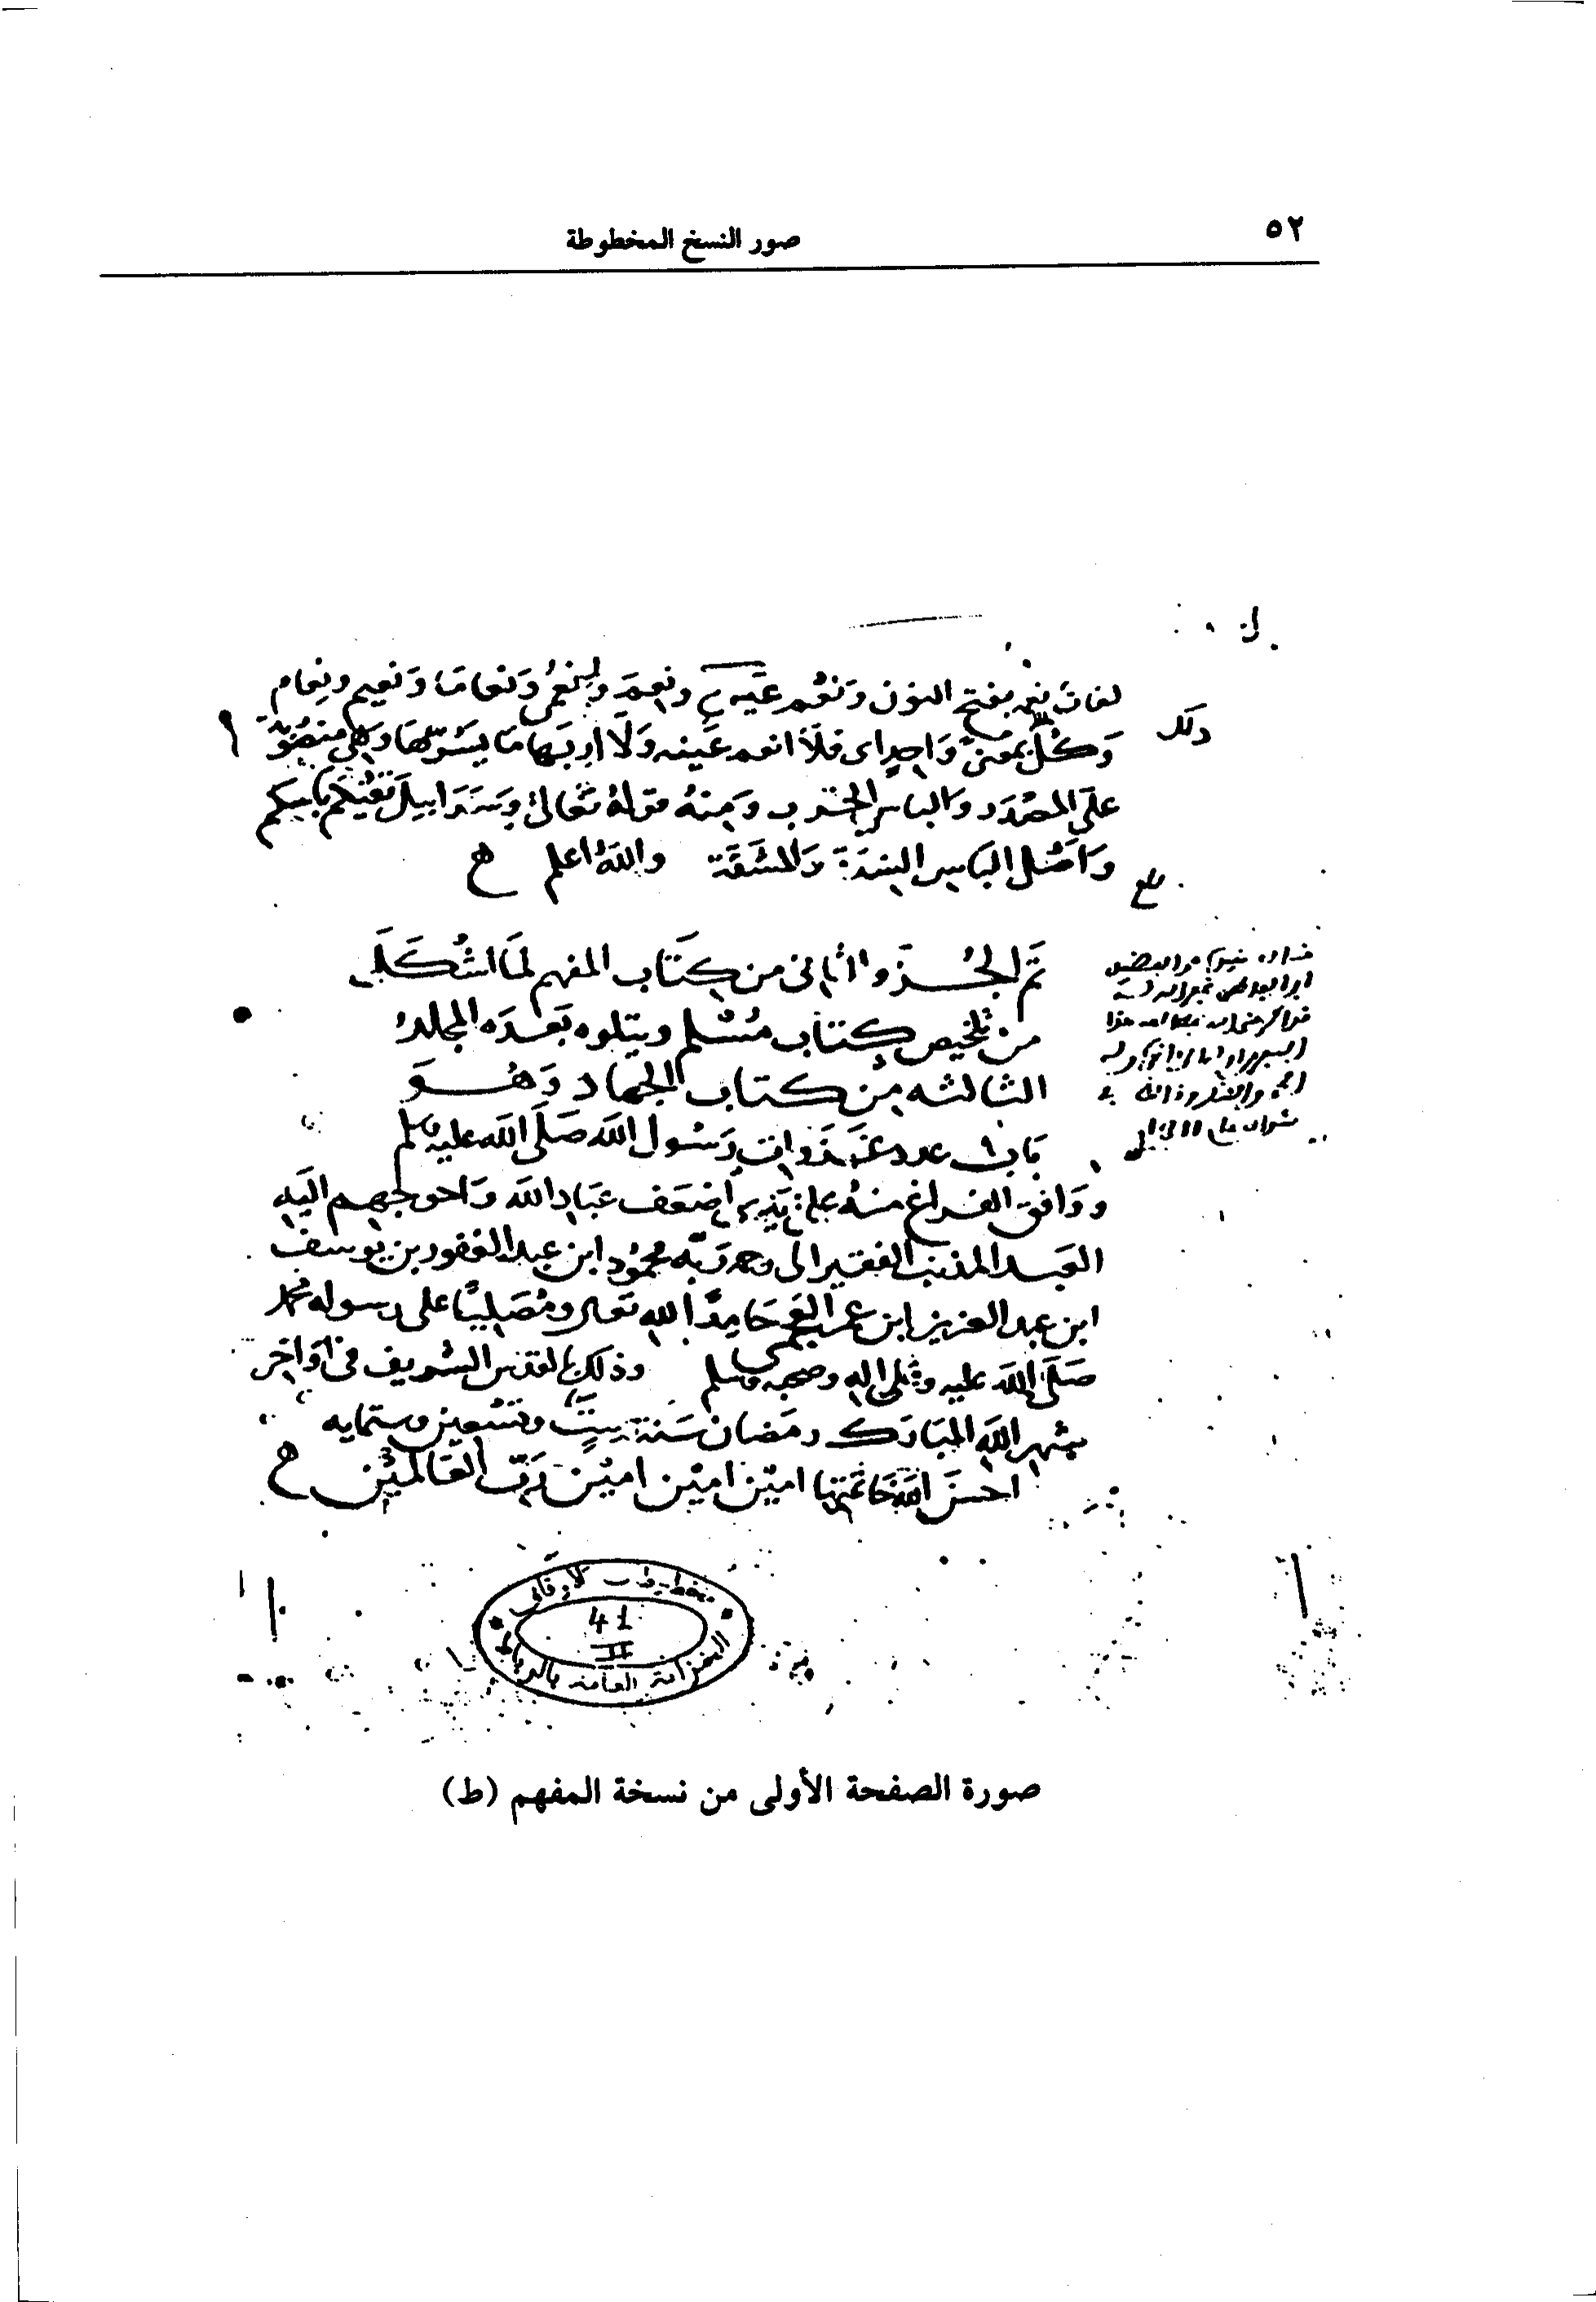 ٥٢
صور النسخ المخطوطة
لغات نعم بفتح النون ونعم عين ونعمة ونعمى ونعامـا ونعيم ونعام
ذلك
وكل بمعنى واحد اى فلا انعم عينه ولا اربها ما يسرها وهي منصوبة
على المصدر والباس الحرب ومنه قوله تعالى وسرابيل تقيكم باسكم
واصل الباس الشدة والمشقة والله اعلم
تم الجزو الثانى من كتاب المفهم لما اشكل
من تلخيص كتاب مسلم ويتلوه بعده المجلد
الثالثه من كتاب الجهاد وهو
باب عدد غزوات رسول الله صلى الله عليه وسلم
ووافق الفراغ منه على يدي اضعف عباد الله واحوجهم اليه
العبد المذنب الفقير الى رحمة ربه محمود ابن عبد الغفور بن يوسف
ابن عبد العزيز ابن عمر العجمي حامدا لله تعالى ومصليا على رسوله محمد
صلى الله عليه وعلى اله وصحبه وسلم وذلك بالقدس الشريف في اواخر
شهر الله المبارك رمضان سنة ست وتسعين وستمايه
احسن الله خاتمتها امين امين امين رب العالمين
مخطوطات الاوقاف
41
II
الخزانة العامة بالرباط
صورة الصفحة الأولى من نسخة المفهم (ط)